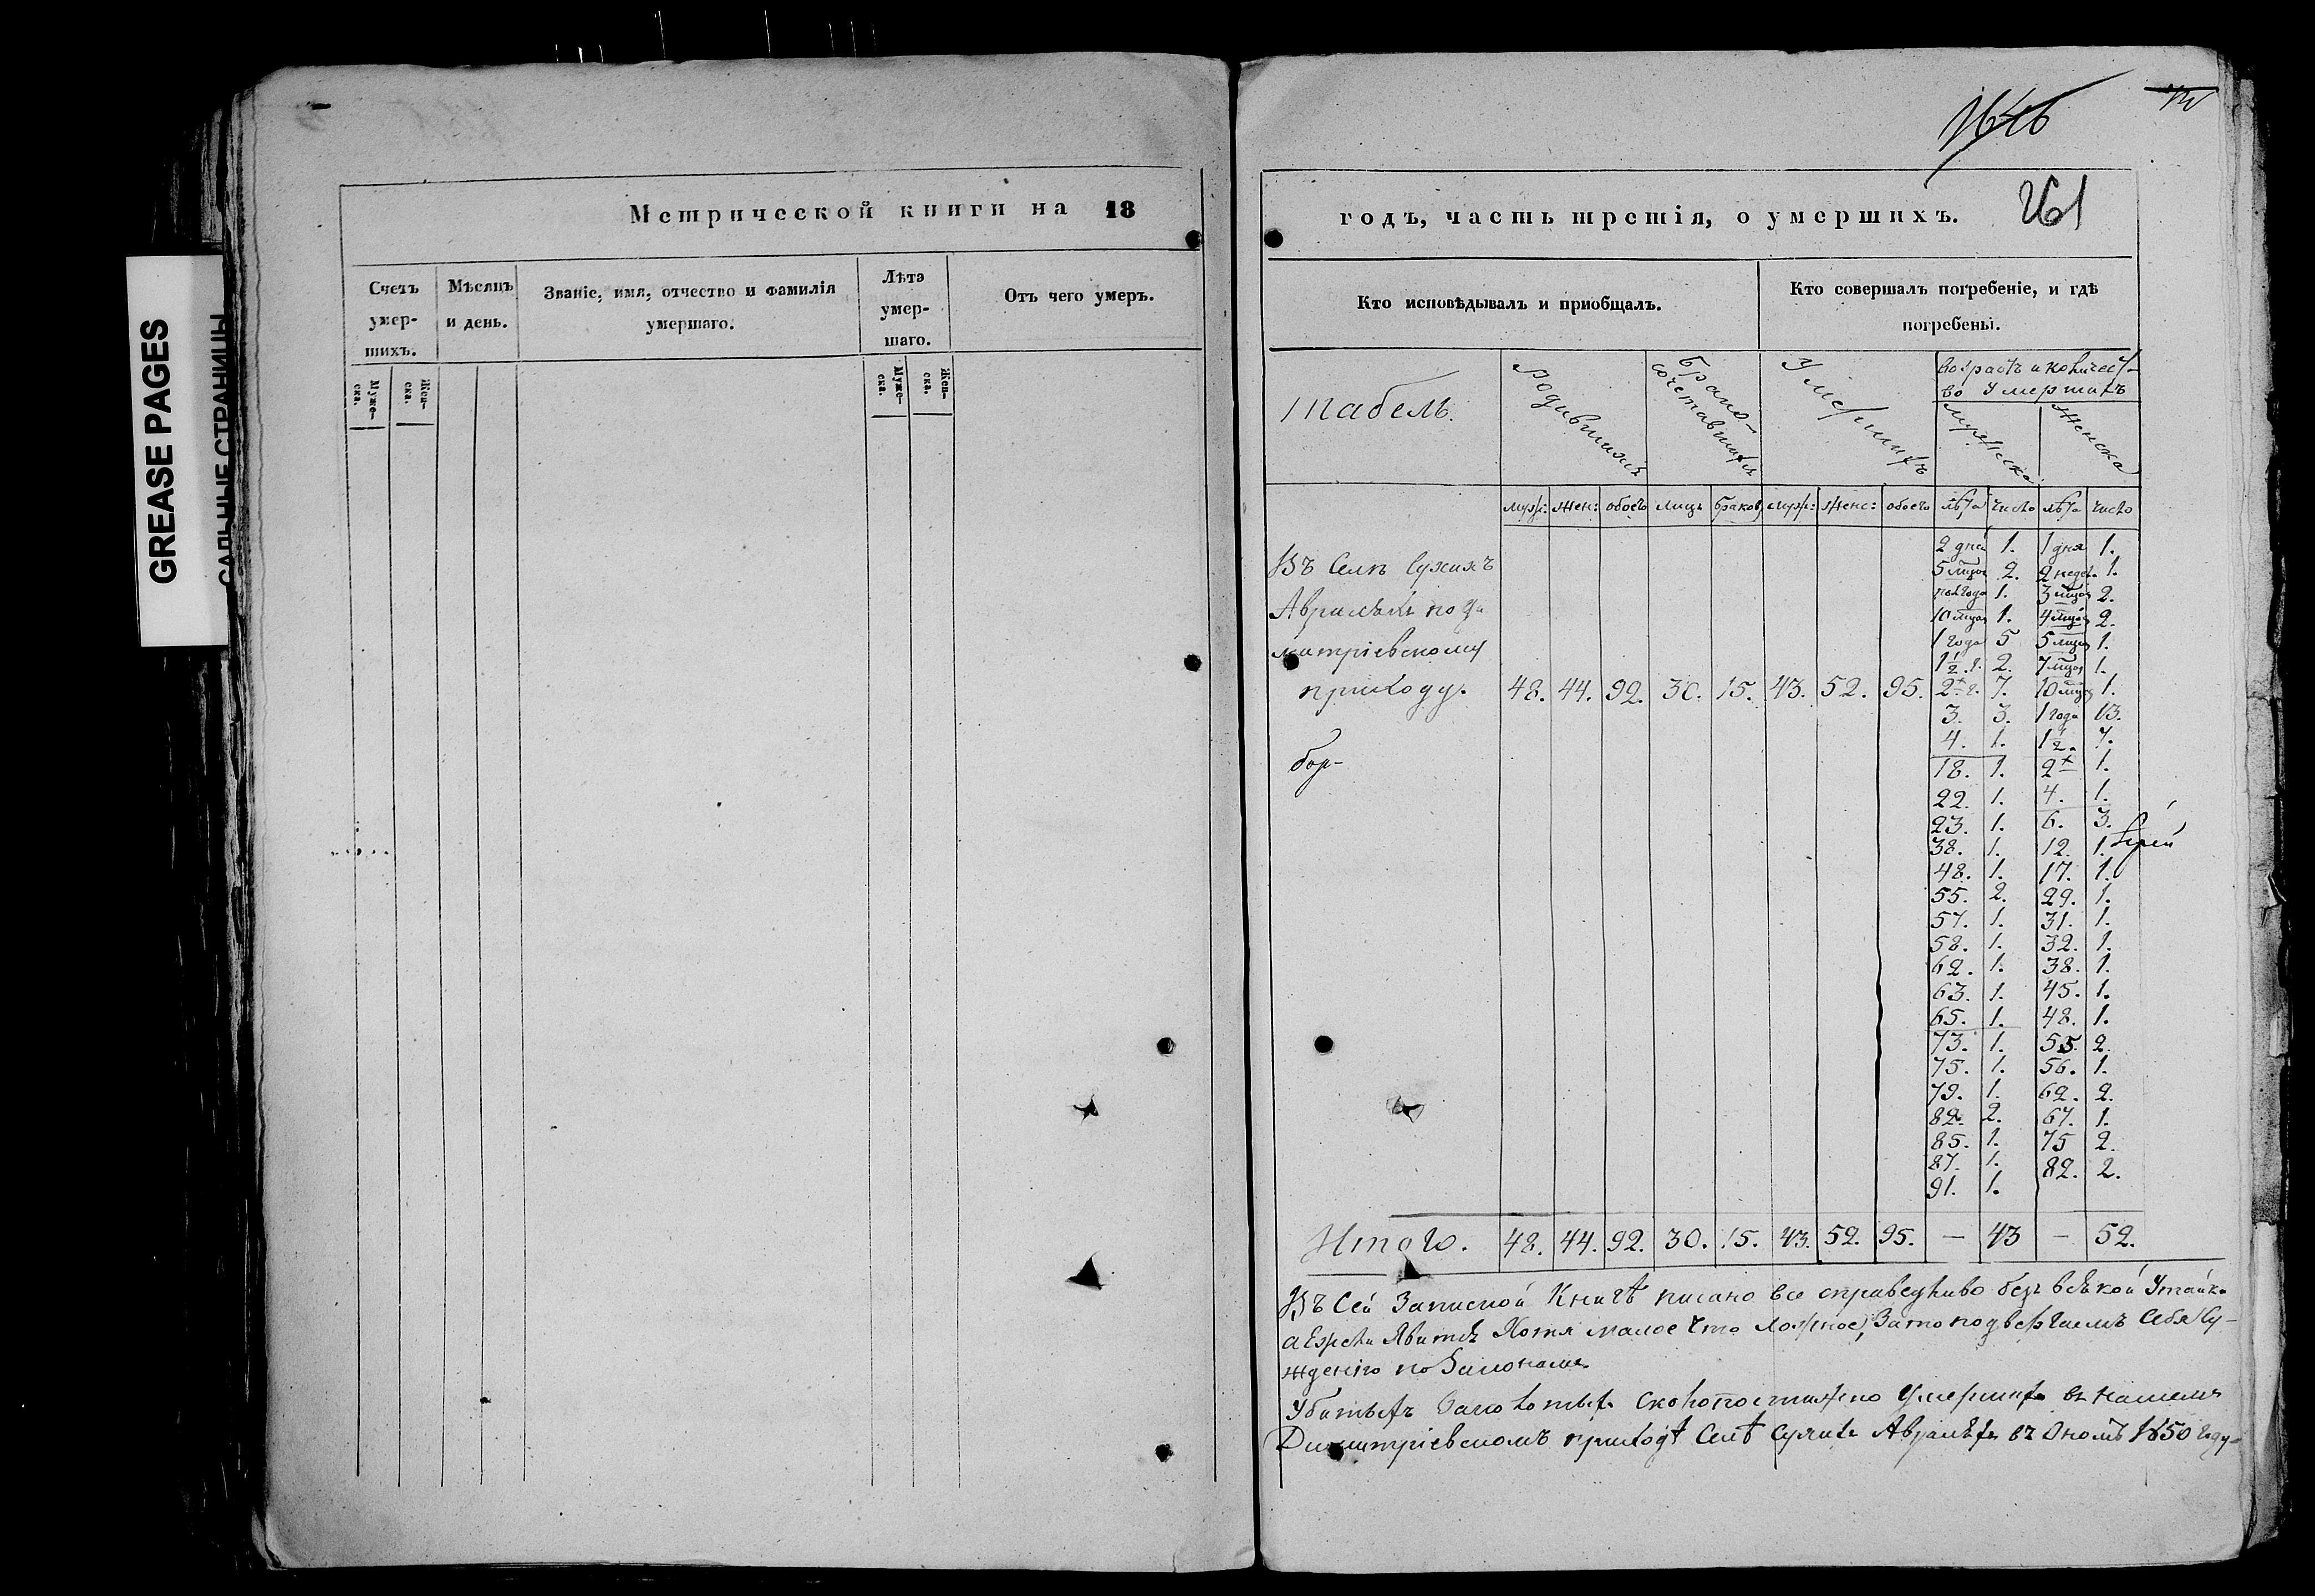 GREASE PAGES
САЛЬНЫЕ СТРАНИЦЫ
Метрической книги на 18
Счетъ умер-шихъ.
Мѣсяцъ и день.
Званіе, имя, отчество и фамилія умершаго.
Лѣта умер-шаго.
Отъ чего умеръ.
Муже-ска.
Жен-ска.
Муже-ска.
Жен-ска.
1646
261
годъ, часть третія, о умершихъ.
Кто исповѣдывалъ и приобщалъ.
Кто совершалъ погребеніе, и гдѣ погребены.
Табель.
Родившихся
Брако-сочетавшихся
Умершихъ
возрастъ и количест-
во Умершихъ
мужеска
Женска
муж: жен: обоего лицъ браковъ муж: женс: обоего лѣта число лѣта число
Въ Селѣ Сухихъ
Аврамѣхъ по Ди
митріевскому
приходу. 48. 44. 92. 30. 15. 43. 52. 95.
2 дней 1. 1 дня 1.
5 мцов 2. 2 недел. 1.
полгода 1. 3 мцов 2.
10 мцов 1. 4 мцов 2.
1 года 5 5 мцов 1.
1 1/2 г. 2. 7 мцов 1.
2х г. 7. 10 мцов 1.
3. 3. 1 года 13.
4. 1. 1 1/2. 7.
18. 1. 2х 1.
22. 1. 4. 1.
23. 1. 6. 3.
38. 1. 12. 1.
48. 1. 17. 1.
55. 2. 29. 1.
57. 1. 31. 1.
58. 1. 32. 1.
62. 1. 38. 1.
63. 1. 45. 1.
65. 1. 48. 1.
73. 1. 55. 2.
75. 1. 56. 1.
79. 1. 62. 2.
82. 2. 67. 1.
85. 1. 75 2.
87. 1. 82. 2.
91. 1.
Итого. 48. 44. 92. 30. 15. 43. 52. 95. — 43 — 52.
Въ Сей Записной Книгѣ писано все справедливо безъ всякой Утайки
а Ежели Явится Хотя малое что Ложное, Зато подвергаемъ Себя Су-
жденію по Законамъ.
Убитыхъ скоропостижно Умершихъ въ нашемъ
Димитріевскомъ приходѣ Селѣ Сухихъ Аврамѣхъ въ Ономъ 1850 Году